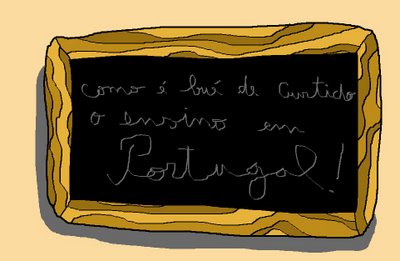 como é bué de curtido
o ensino em
Portugal!